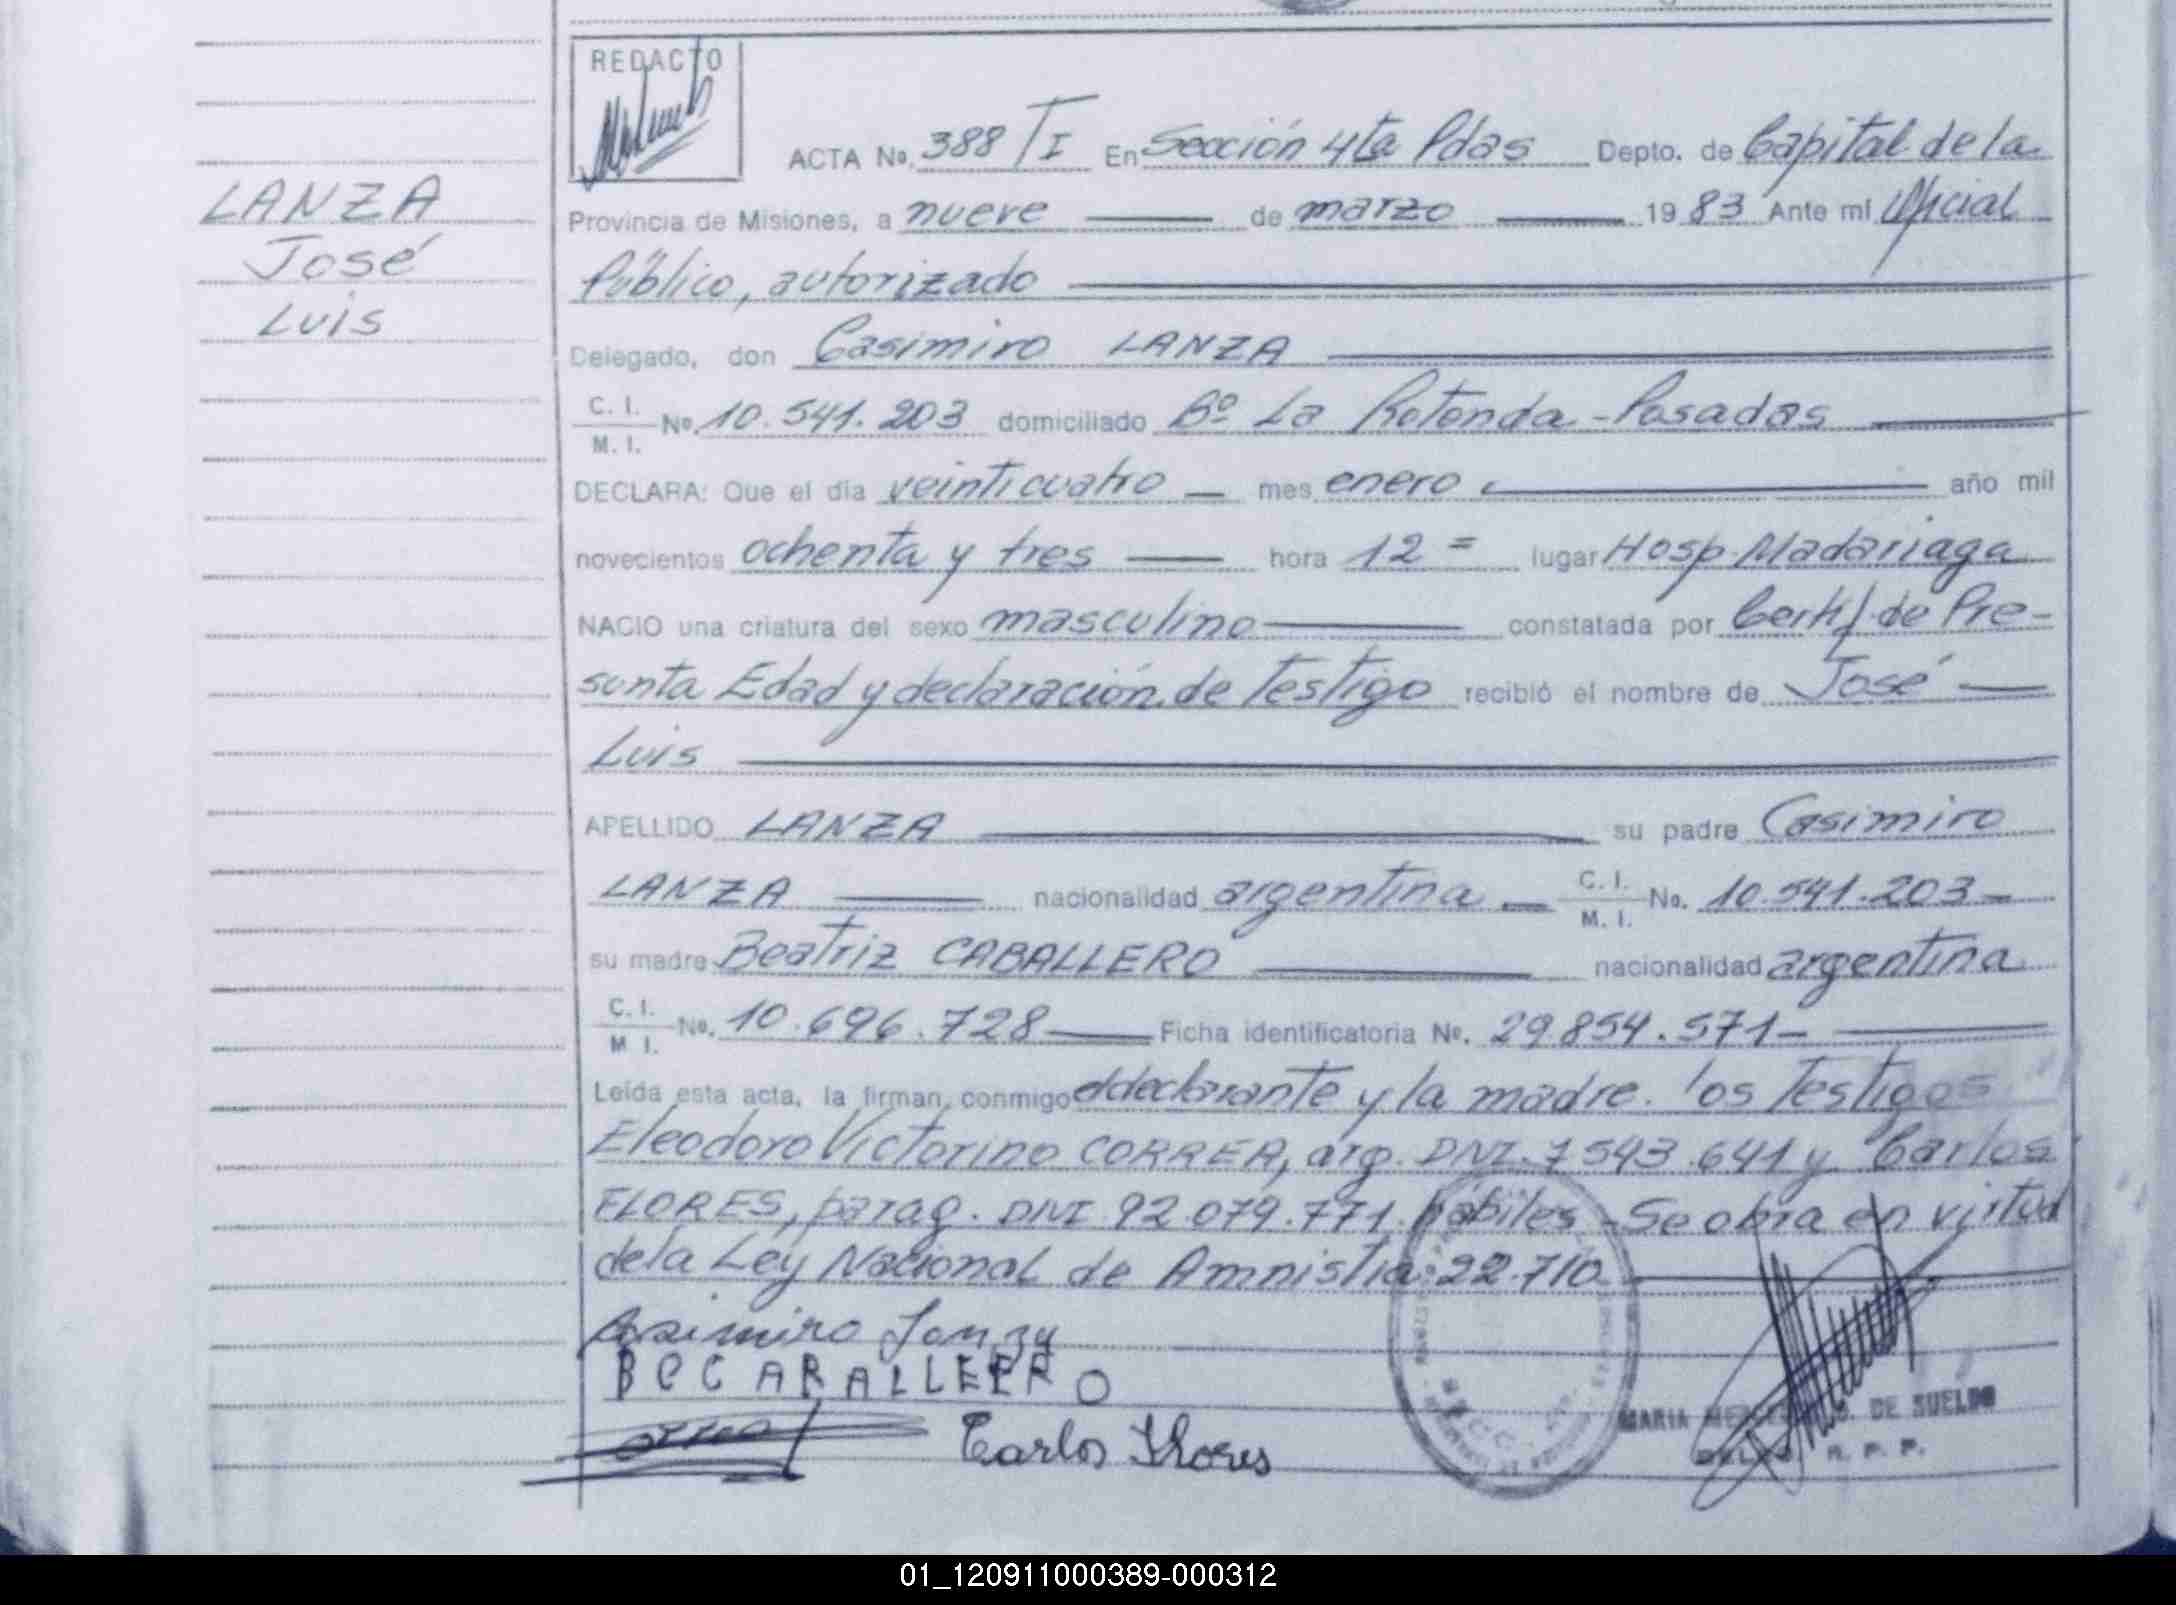 REDACTO
ACTA No. 388/I En Sección 4ta Pdas Depto. de Capital de la
Provincia de Misiones, a nueve de marzo 1983 Ante mí Oficial
Público, autorizado
Delegado, don Casimiro LANZA
C. I.
M. I. No. 10.541.203 domiciliado Bº La Rotonda - Posadas
DECLARA: Que el día veinticuatro mes enero año mil
novecientos ochenta y tres hora 12 = lugar Hosp. Madariaga
NACIO una criatura del sexo masculino constatada por Certif. de Pre-
sunta Edad y declaración de Testigo recibió el nombre de José
Luis
APELLIDO LANZA su padre Casimiro
LANZA nacionalidad argentina C. I.
M. I. No. 10.541.203-
su madre Beatriz CABALLERO nacionalidad argentina
C. I.
M. I. No. 10.696.728 Ficha identificatoria No. 29.854.571-
Leída esta acta, la firman conmigo el declarante y la madre. los Testigos
Eleodoro Victorino CORREA, arg. DNI. 7543.641 y Carlos
FLORES, parag. DNI 92.079.771. hábiles - Se obra en virtud
de la Ley Nacional de Amnistia 22.710
Casimiro Lanza
BCCARALLERRO
Carlos Flores
MARIA DE SUELDO
R. P. P.
LANZA
José
Luis
01_120911000389-000312